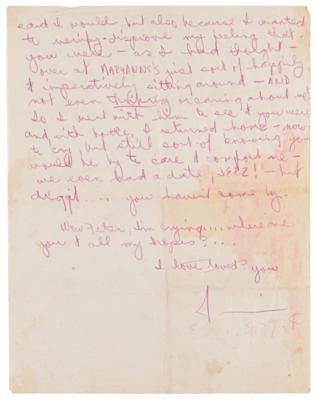 said I would but also because I wanted
to verify-disprove my feeling that
you were — as I had thought —
over at MARYANNE's just sort of happily
& imperatively sitting around — AND
not even thinking or caring about me!
So I went with them to see if you were
and with hope, I returned home — now
to cry, but still sort of knowing you
would be by to care & comfort me —
we even had a date, JEEZ! — but
dammit.... you haven't come by.
Wow Peter, I'm crying....where are
you & all my hopes?....
I love loved? you